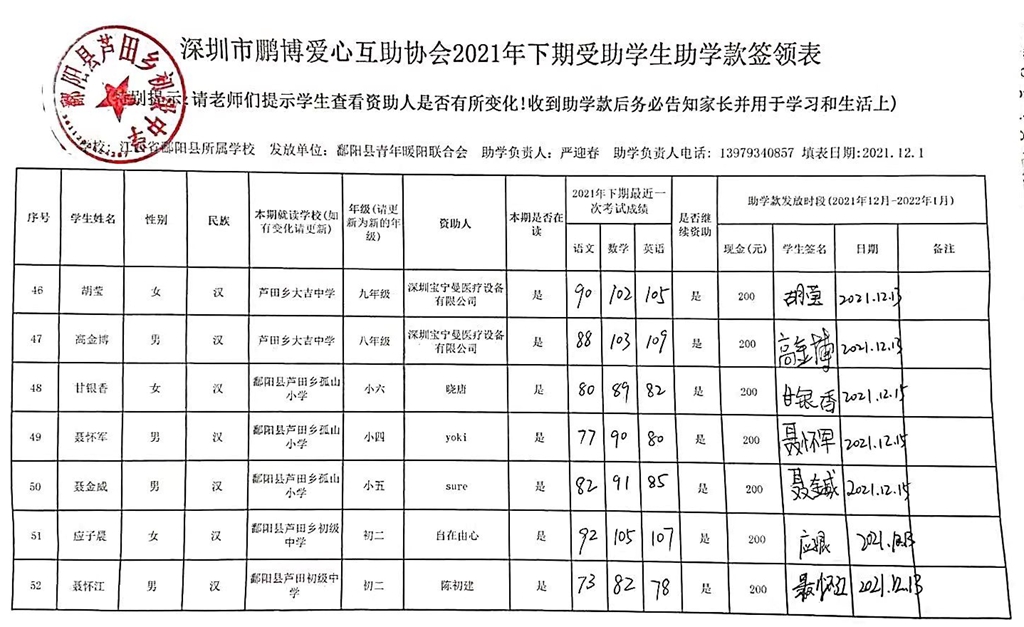 深圳市鹏博爱心互助协会2021年下期受助学生助学款签领表
特别提示:请老师们提示学生查看资助人是否有所变化!收到助学款后务必告知家长并用于学习和生活上)
学校: 江西省鄱阳县所属学校 发放单位: 鄱阳县青年暖阳联合会 助学负责人: 严迎春 助学负责人电话: 13979340857 填表日期:2021.12.1
序号 学生姓名 性别 民族 本期就读学校(如有变化请更新) 年级(请更新为新的年级) 资助人 本期是否在读 2021年下期最近一次考试成绩 是否继续资助 助学款发放时段(2021年12月-2022年1月)
语文 数学 英语 现金(元) 学生签名 日期 备注
46 胡莹 女 汉 芦田乡大吉中学 九年级 深圳宝宁曼医疗设备有限公司 是 90 102 105 是 200 胡莹 2021.12.13
47 高金博 男 汉 芦田乡大吉中学 八年级 深圳宝宁曼医疗设备有限公司 是 88 103 109 是 200 高金博 2021.12.13
48 甘银香 女 汉 鄱阳县芦田乡孤山小学 小六 晓唐 是 80 89 82 是 200 甘银香 2021.12.15
49 聂怀军 男 汉 鄱阳县芦田乡孤山小学 小四 yoki 是 77 90 80 是 200 聂怀军 2021.12.15
50 聂金威 男 汉 鄱阳县芦田乡孤山小学 小五 sure 是 82 91 85 是 200 聂金威 2021.12.15
51 应子晨 女 汉 鄱阳县芦田乡初级中学 初二 自在由心 是 92 105 107 是 200 2021.12.13
52 聂怀江 男 汉 鄱阳县芦田初级中学 初二 陈初建 是 73 82 78 是 200 聂怀江 2021.12.13
鄱阳县芦田乡初级中学